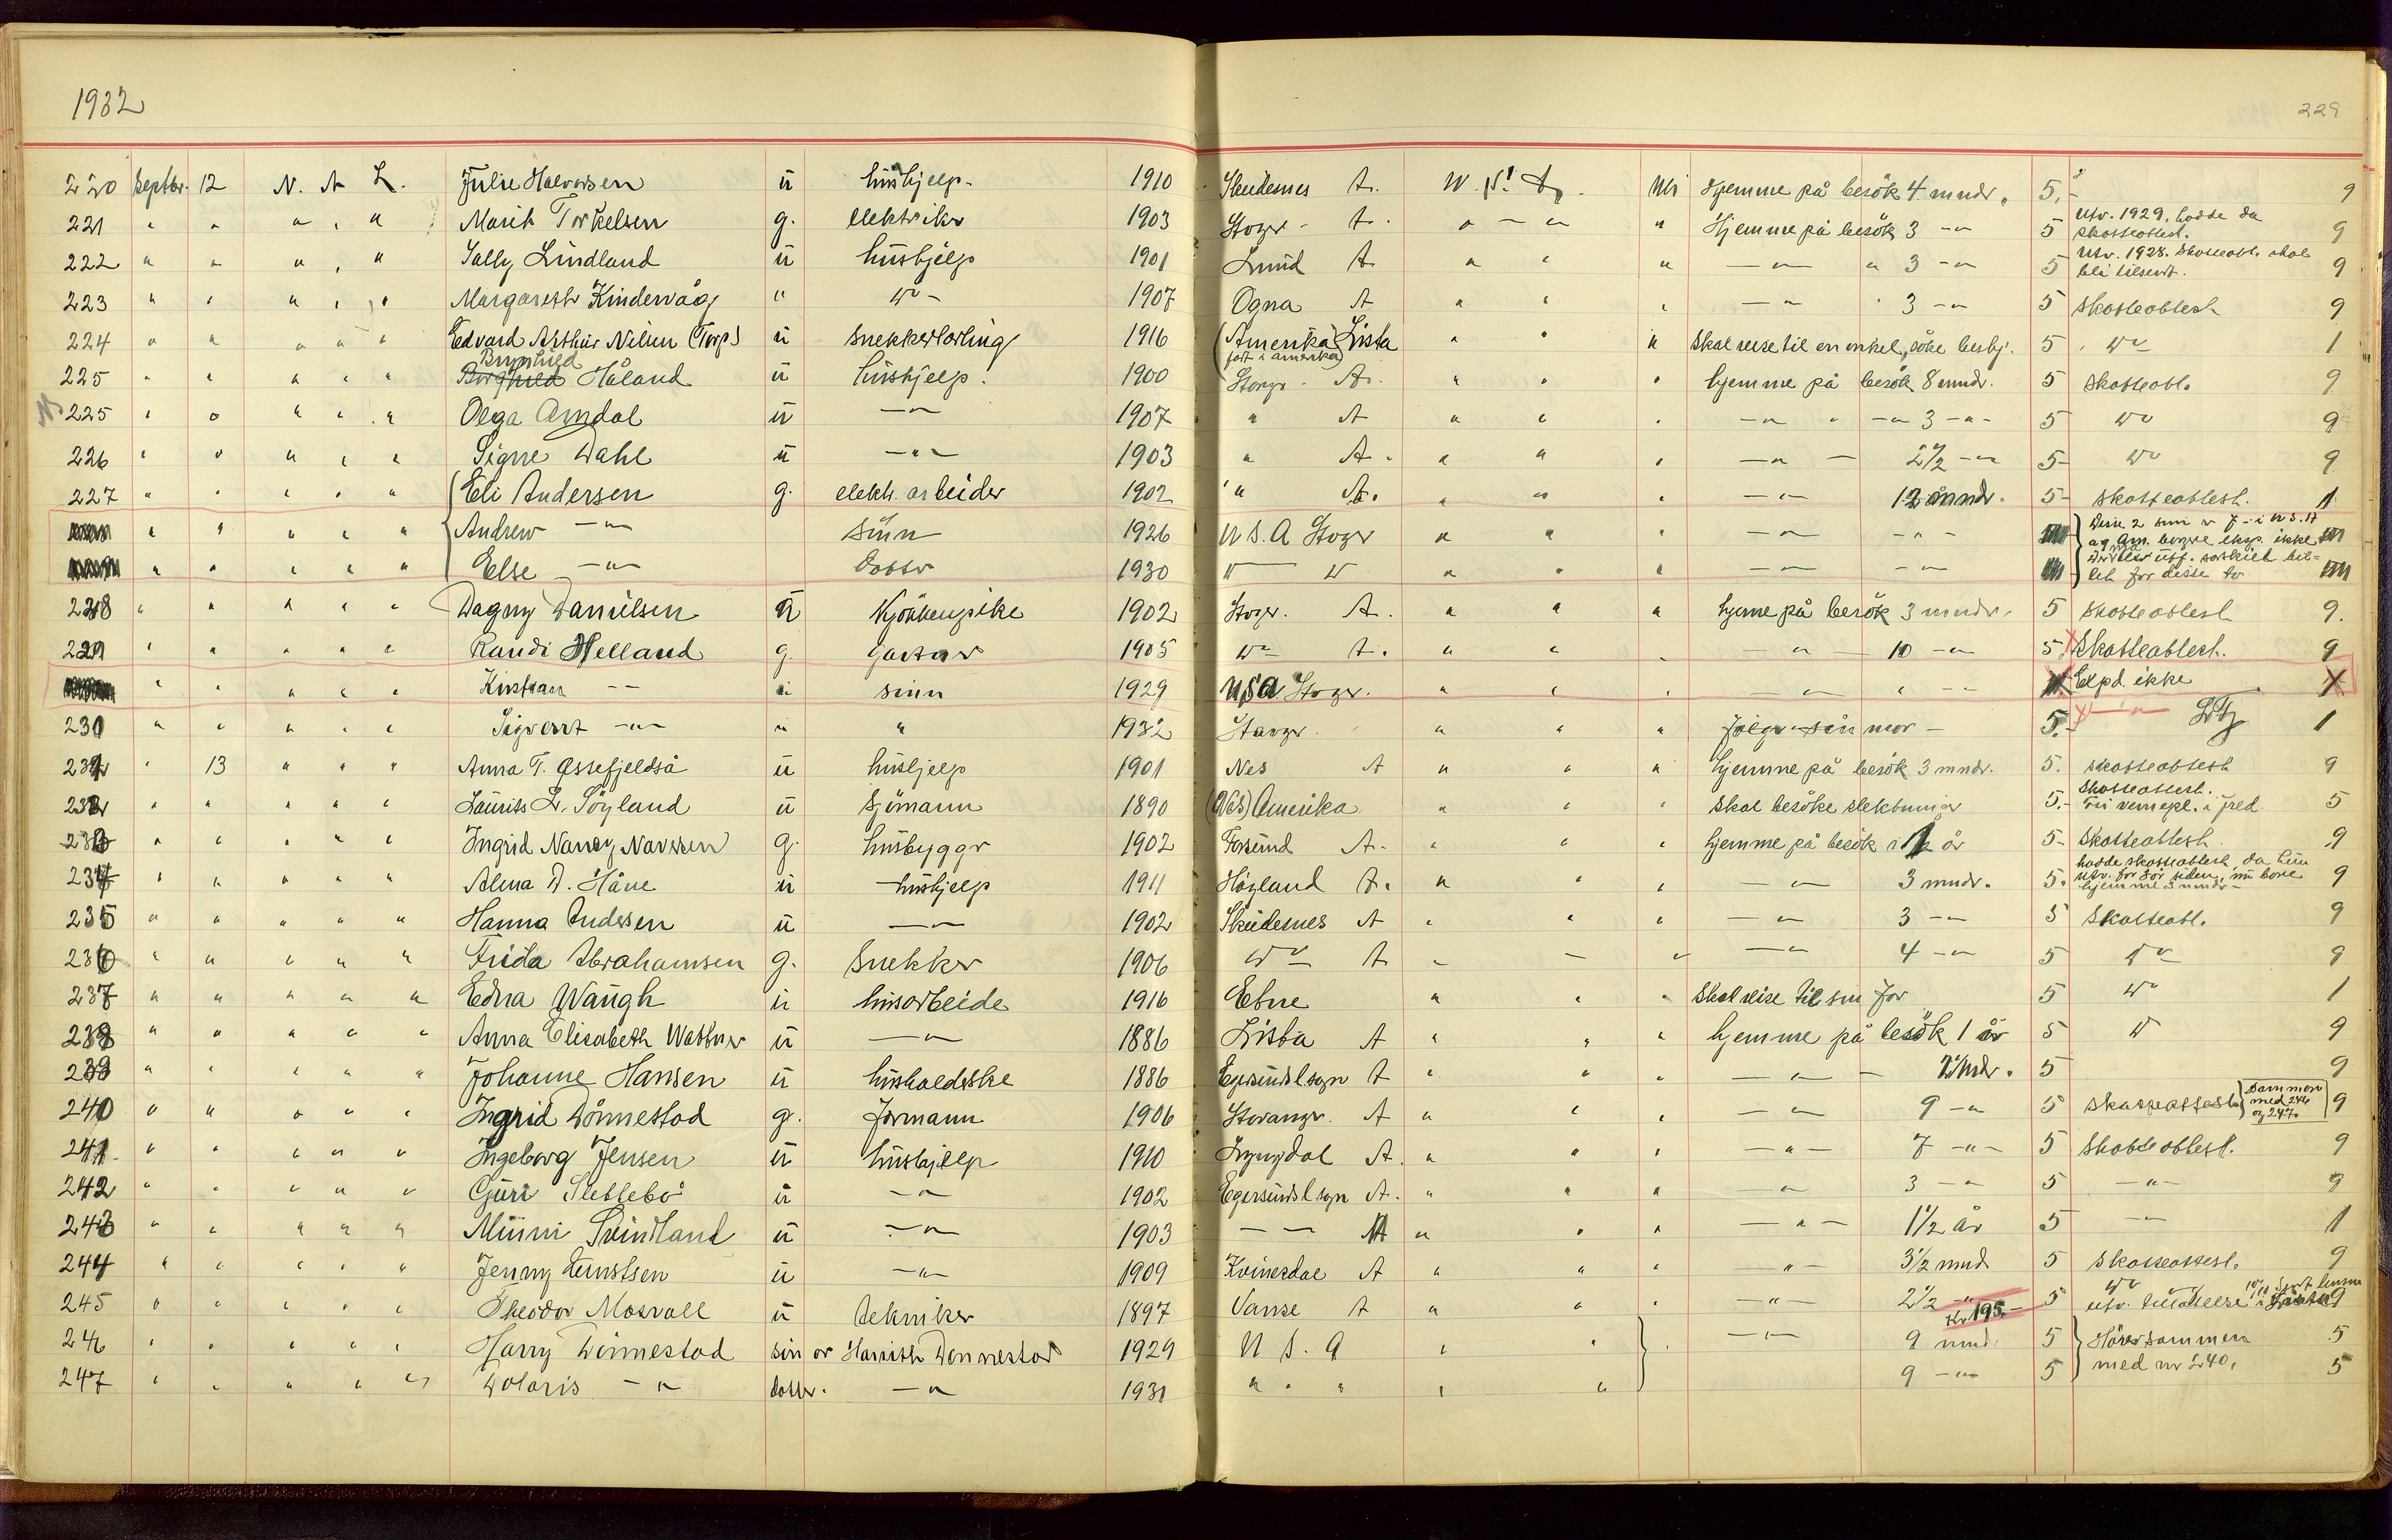 1932
229
220 Septbr. 12 N. A L. Julie Halvorsen u hushjelp. 1910 Skudenes A. U.S. A. Uli Hjemme på besök 4 mndr. 5.- 9
221 " " " " " Marit Torkelsen g. elektriker 1903 Stavgr - A. " - " " Hjemme på besök 3 -"- 5 Utv. 1929, hadde da skatteattest. 9
222 " " " " " Sally Lindland u hushjelp 1901 Lund A " " " -"- " 3 -"- 5 Utv. 1928. Skatteatt. skal bli tilsendt. 9
223 " " " " " Margareth Kindervåg " do - 1907 Ogna A " " " -"- " 3 -"- 5 Skatteattest 9
224 " " " " " Edvard Arthur Nilsen (Torp) u snekkerlærling 1916 (Amerika) Lista " " " Skal reise til en onkel, söke beskj. 5 " do 1
(födt i amerika)
Brynhild
225 " " " " " Borghild Håland u hushjelp. 1900 Stavgr. A. " " " hjemme på besök 8 mndr. 5 Skatteatt. 9
225 " " " " " Olga Amdal u -"- 1907 " A " " " -"- " -"- 3 -"- 5 do 9
226 " " " " " Signe Dahl u -"- 1903 " A. " " " -"- - 2 1/2 -"- 5- do 9
227 " " " " " Eli Andersen g. elektr. arbeider 1902 " A. " " " -"- 12 mndr. 5- skatteattest. 1
" " " " " Andrew -"- sönn 1926 U S. A Stavgr " " " -"- -"- Disse 2 er f. i U.S.A og Am. borgere eksp. ikke
" " " " " Else -"- Datter 1930 do do " " " -"- -"- utf. særskilt bil= let for disse to.
228 " " " " " Dagny Danielsen u Kjökkenpike 1902 Stavgr. A. " " " hjeme på besök 3 mndr. 5 Skatteattest 9.
229 " " " " " Randi Helland g. gartner 1905 do A. " " " -"- 10 -"- 5. Skatteattest. 9
" " " " " Kristian -"- u sönn 1929 USA Stavgr. " " " -"- " -"- Expd. ikke X
230 " " " " " Sigvart -"- " " 1932 Stavgr. " " " Fölger sin mor - 5.- -"- 1
231 " 13 " " " Anna T. Åssefjeldså u hushjelp 1901 Nes A " " " hjemme på besök 3 mndr. 5. skatteattest 9
232 " " " " " Laurits L. Söyland u Sjömann 1890 (Nes) Amerika " " " Skal besöke slektninger 5.- Skatteattest. Fri vernepl. i fred 5
233 " " " " " Ingrid Nancy Naversen g. husbygger 1902 Forsand A. " " " hjemme på besök i 1 år 5- Skatteattest 9
234 " " " " " Alma D. Håne u -husbjelp 1911 Högland A. " " " -"- 3 mndr. 5. hadde skatteattest, da hun utv. for 3 år siden, nu bare hjemme 3 mndr - 9
235 " " " " " Hanna Andersen u -"- 1902 Skudenes A " " " -"- 3 -"- 5 Skatteatt. 9
236 " " " " " Frida Abrahamsen g. Snekker 1906 do A " - " -"- 4 -"- 5 do 9
237 " " " " " Edna Waugh u husarbeide 1916 Etne " " " Skal reise til sin far 5 do 1
238 " " " " " Anna Elisabeth Wattner u -"- 1886 Lista A " " " hjemme på besök 1 år 5 do 9
239 " " " " " Johanne Hansen u husholderske 1886 Egersundslsogn A " " " -"- - 2 mdr. 5 9
240 " " " " " Ingrid Dönnestad g. formann 1906 Stavangr. A " " " -"- 9 -"- 5 skatteattest sammen med 246 og 247. 9
241 " " " " " Ingeborg Jensen u hushjelp 1910 Lyngdal A. " " " -"- 7 -"- 5 skatteattest. 9
242 " " " " " Guri Slettebö u -"- 1902 Egersundsl.sogn A. " " " -"- 3 -"- 5 -"- 9
243 " " " " " Minni Svindland u -"- 1903 -"- A " " " -"- 1 1/2 år 5 -"- 1
244 " " " " " Jenny Ernstsen u -"- 1909 Kvinesdal A " " " -"- 3 1/2 mnd 5 skatteattest. 9
245 " " " " " Theodor Mosvall u tekniker 1897 Vanse A " " " -"- 2 1/2 -"- 5 do utv. tillatelse 9
Kr. 195.-
246 " " " " " Harry Dönnestad sön av Dønnestad 1929 U S. A " " " -"- 9 mnd. 5 Hörer sammen 5
247 " " " " " Doloris -"- datter. -"- 1931 " " " " " 9 -"- 5 med nr 240. 5